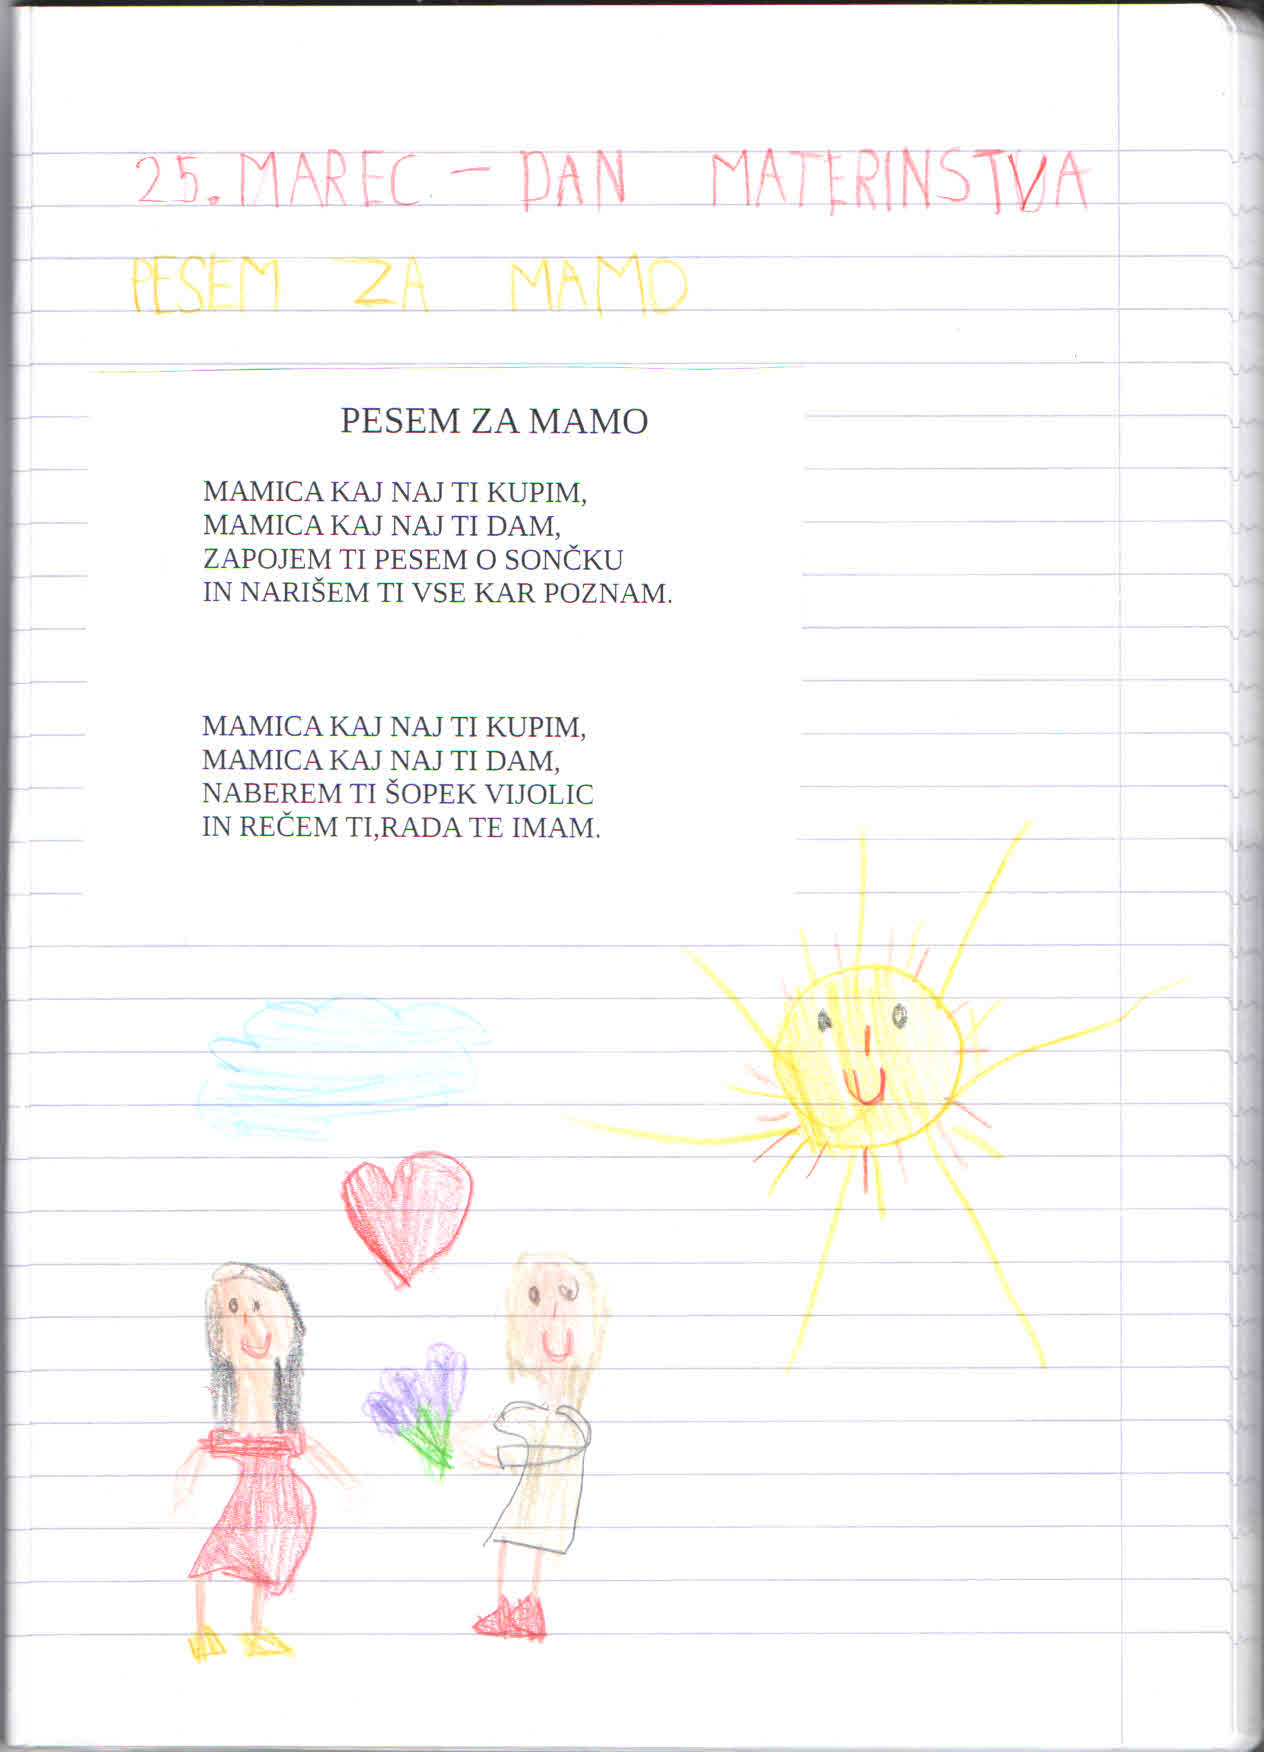 25. MAREC - DAN MATERINSTVA
PESEM ZA MAMO
PESEM ZA MAMO
MAMICA KAJ NAJ TI KUPIM,
MAMICA KAJ NAJ TI DAM,
ZAPOJEM TI PESEM O SONČKU
IN NARIŠEM TI VSE KAR POZNAM.
MAMICA KAJ NAJ TI KUPIM,
MAMICA KAJ NAJ TI DAM,
NABEREM TI ŠOPEK VIJOLIC
IN REČEM TI,RADA TE IMAM.